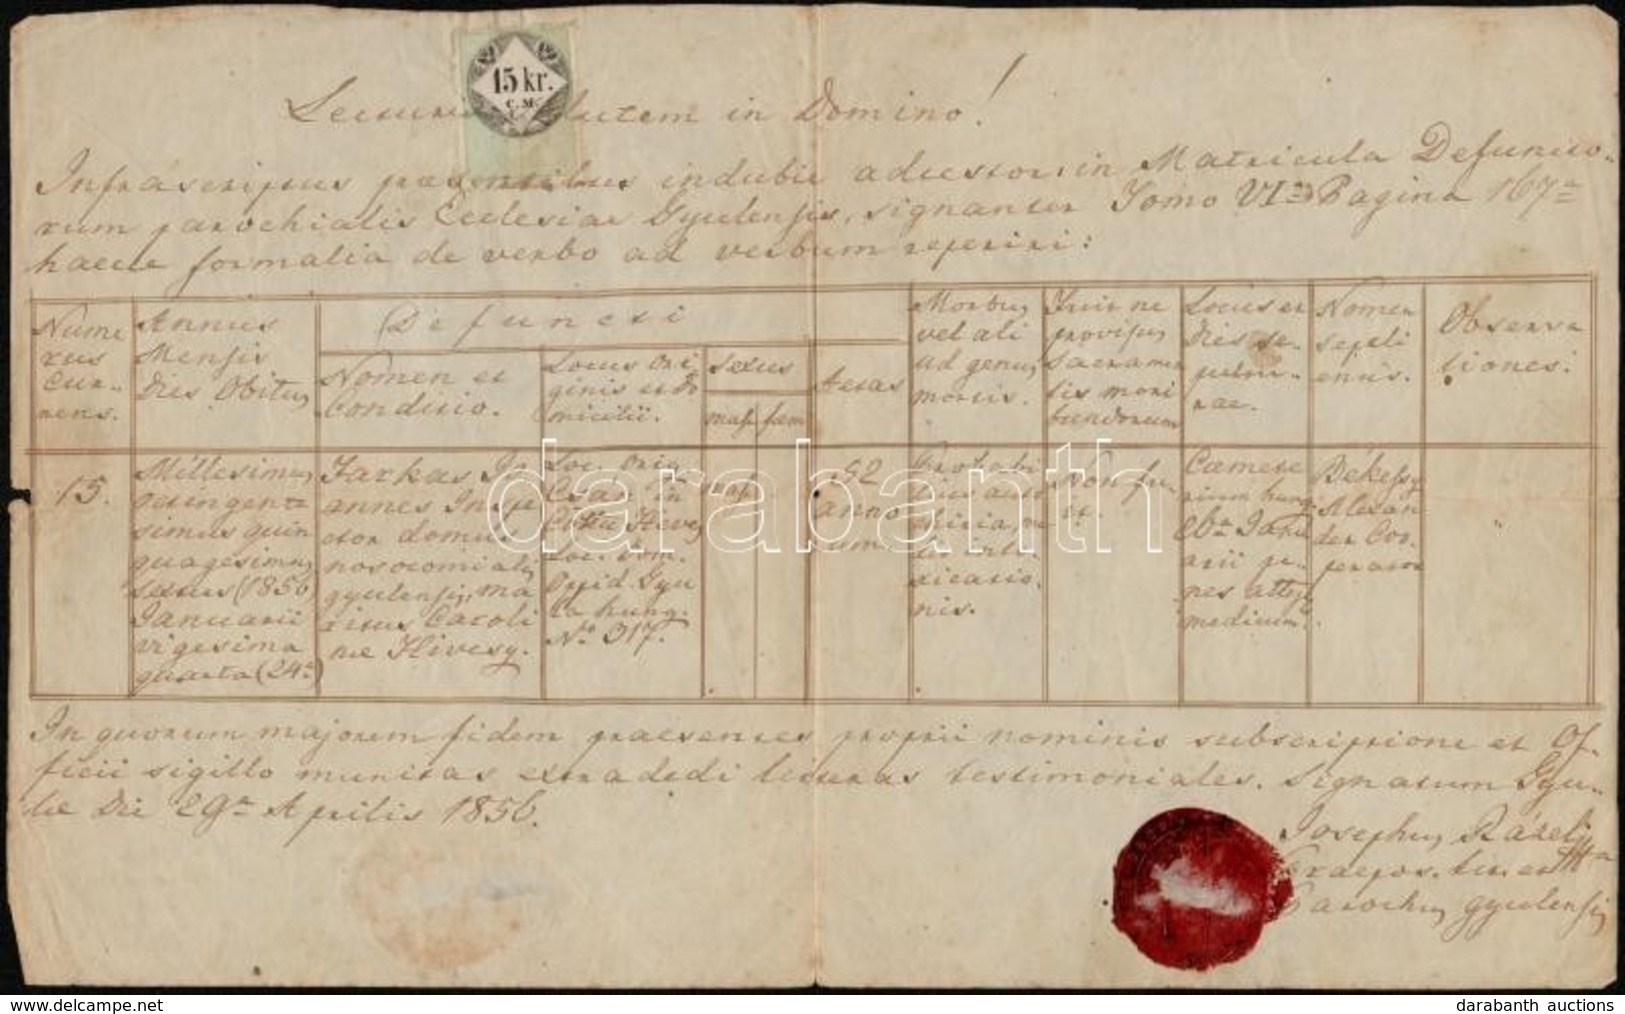 15 kr.
C.M.
in Domino!
Infrascriptus praesentibus indubie adtestor in Matricula Defuncto-
rum parochialis Ecclesiae Gyulensis, signanter Tomo VI Pagina 167a
haece formalia de verbo ad verbum reperiri:
Nume
rus
Cur-
rens.
Annus
Mensis
Dies Obitus
Defuncti
Nomen et
Conditio.
Locus Ori
ginis et Do
micilii.
Sexus
mas. fem
Aetas
Morbus
vel ali
ud genus
mortis.
Fuit ne
provisus
Sacramen
tis mori
bundorum
Locus et
Dies se-
pultu-
rae.
Nomen
sepeli
entis.
Observa
tiones.
15.
Millesimus
octingente
simus quin
quagesimus
sextus (1856)
Januarii
vigesima
quarta (24a)
Farkas Jo
annes Inspe
ctor domus
nosocomialis
gyulensis, ma
ritus Caroli
nae Hivesy.
Loc. Orig.
Csár in
Cottu Heves
Loc. Dom.
Oppid. Gyu
la hung.
No. 317.
mas.
52
anno
rum.
Probabi
lius auto
chiria, me
dio into
xicatio
nis.
Non fu-
it.
Coemete
rium hung.
26a Janu
arii pe
nes
medium.
Békessy
Alexan
der Coo-
perator
"
In quorum majorem fidem praesentes proprii nominis subscriptione et Of-
ficii sigillo munitas extradedi literas testimoniales. Signatum Gyu-
lae Die 29a Aprilis 1856.
Josephus
Parochus gyulensis
darabanth
www.darabanth.com
darabanth auctions